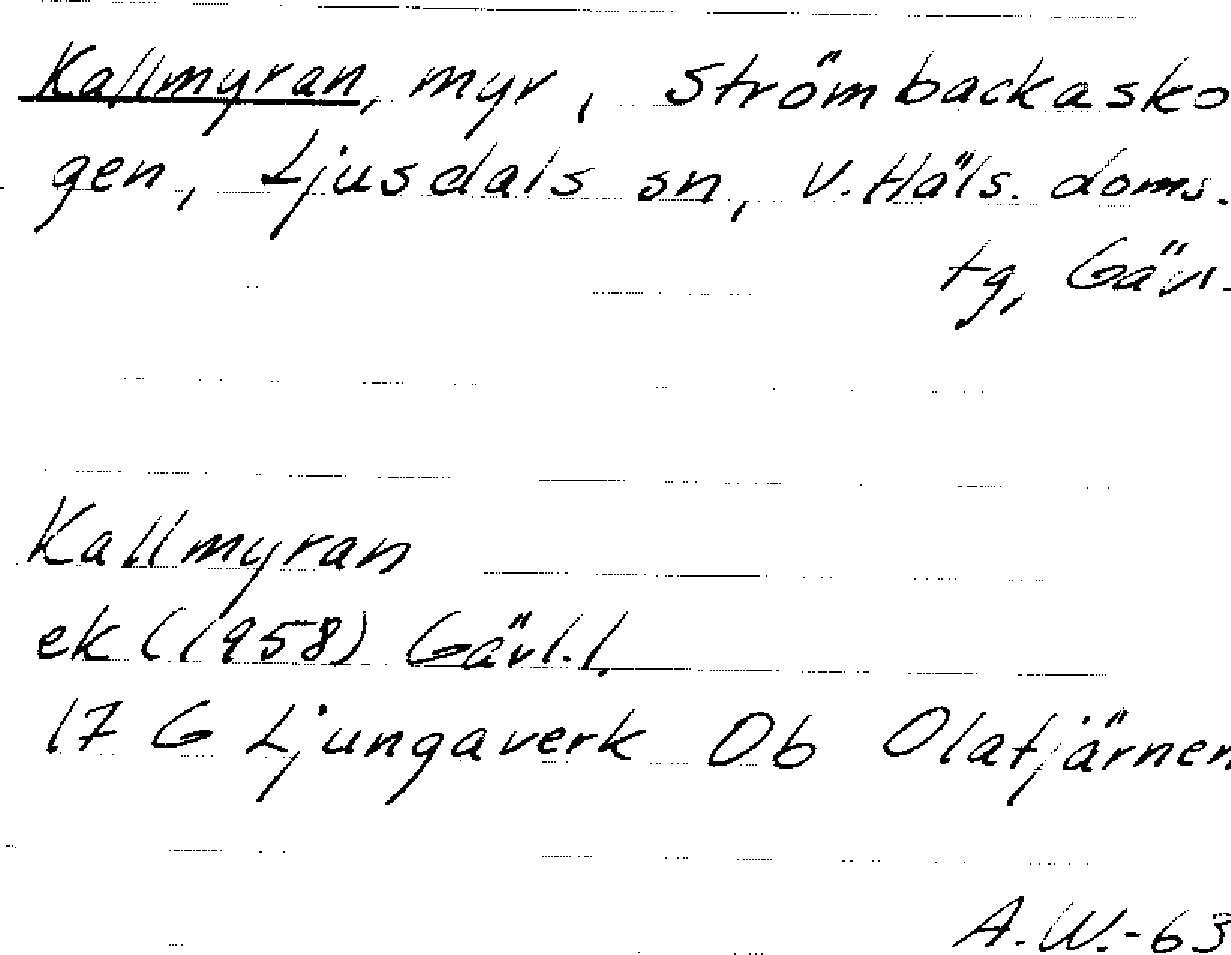 Kallmyran, myr, Strömbackasko
gen, Ljusdals sn, V. Häls. doms.
tg, Gävl.
Kallmyran
ek (1958) Gävl.l.
17 G Ljungaverk 0b Olatjärnen
A.W.-63